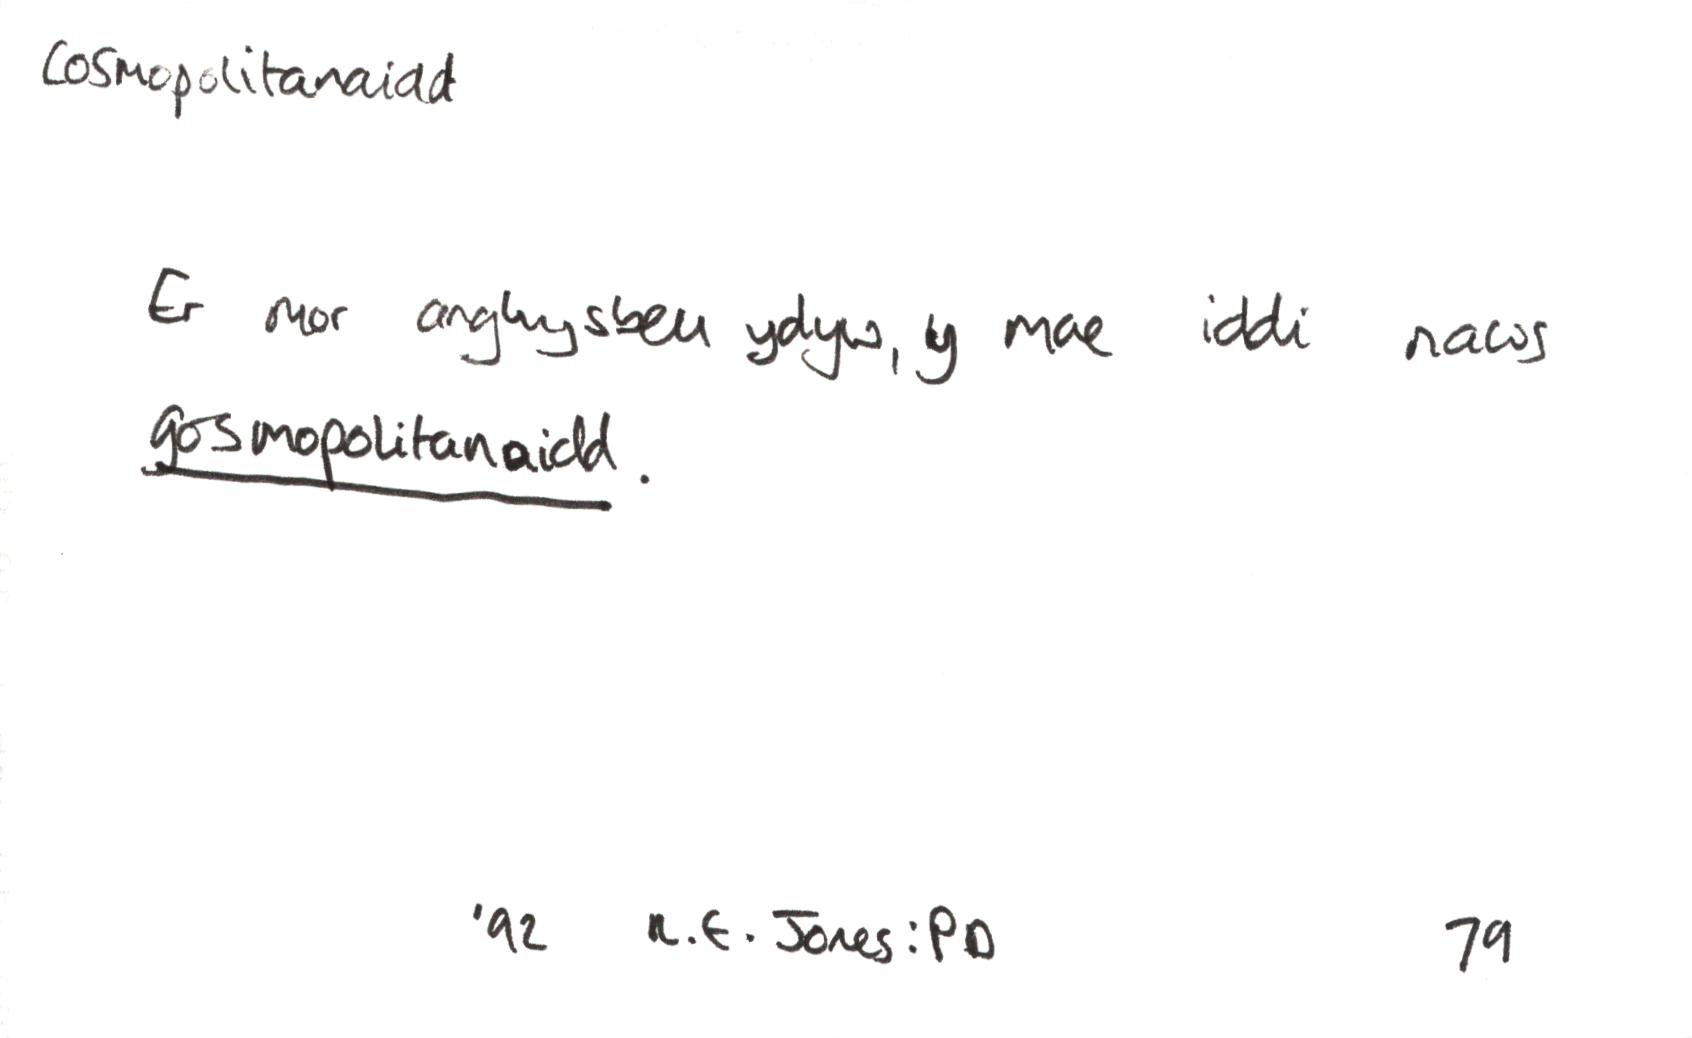 Cosmopolitanaidd
Er mor anghysbell ydyw, y mae iddi naws
gosmopolitanaidd.
'92 R.E. Jones: PD 79